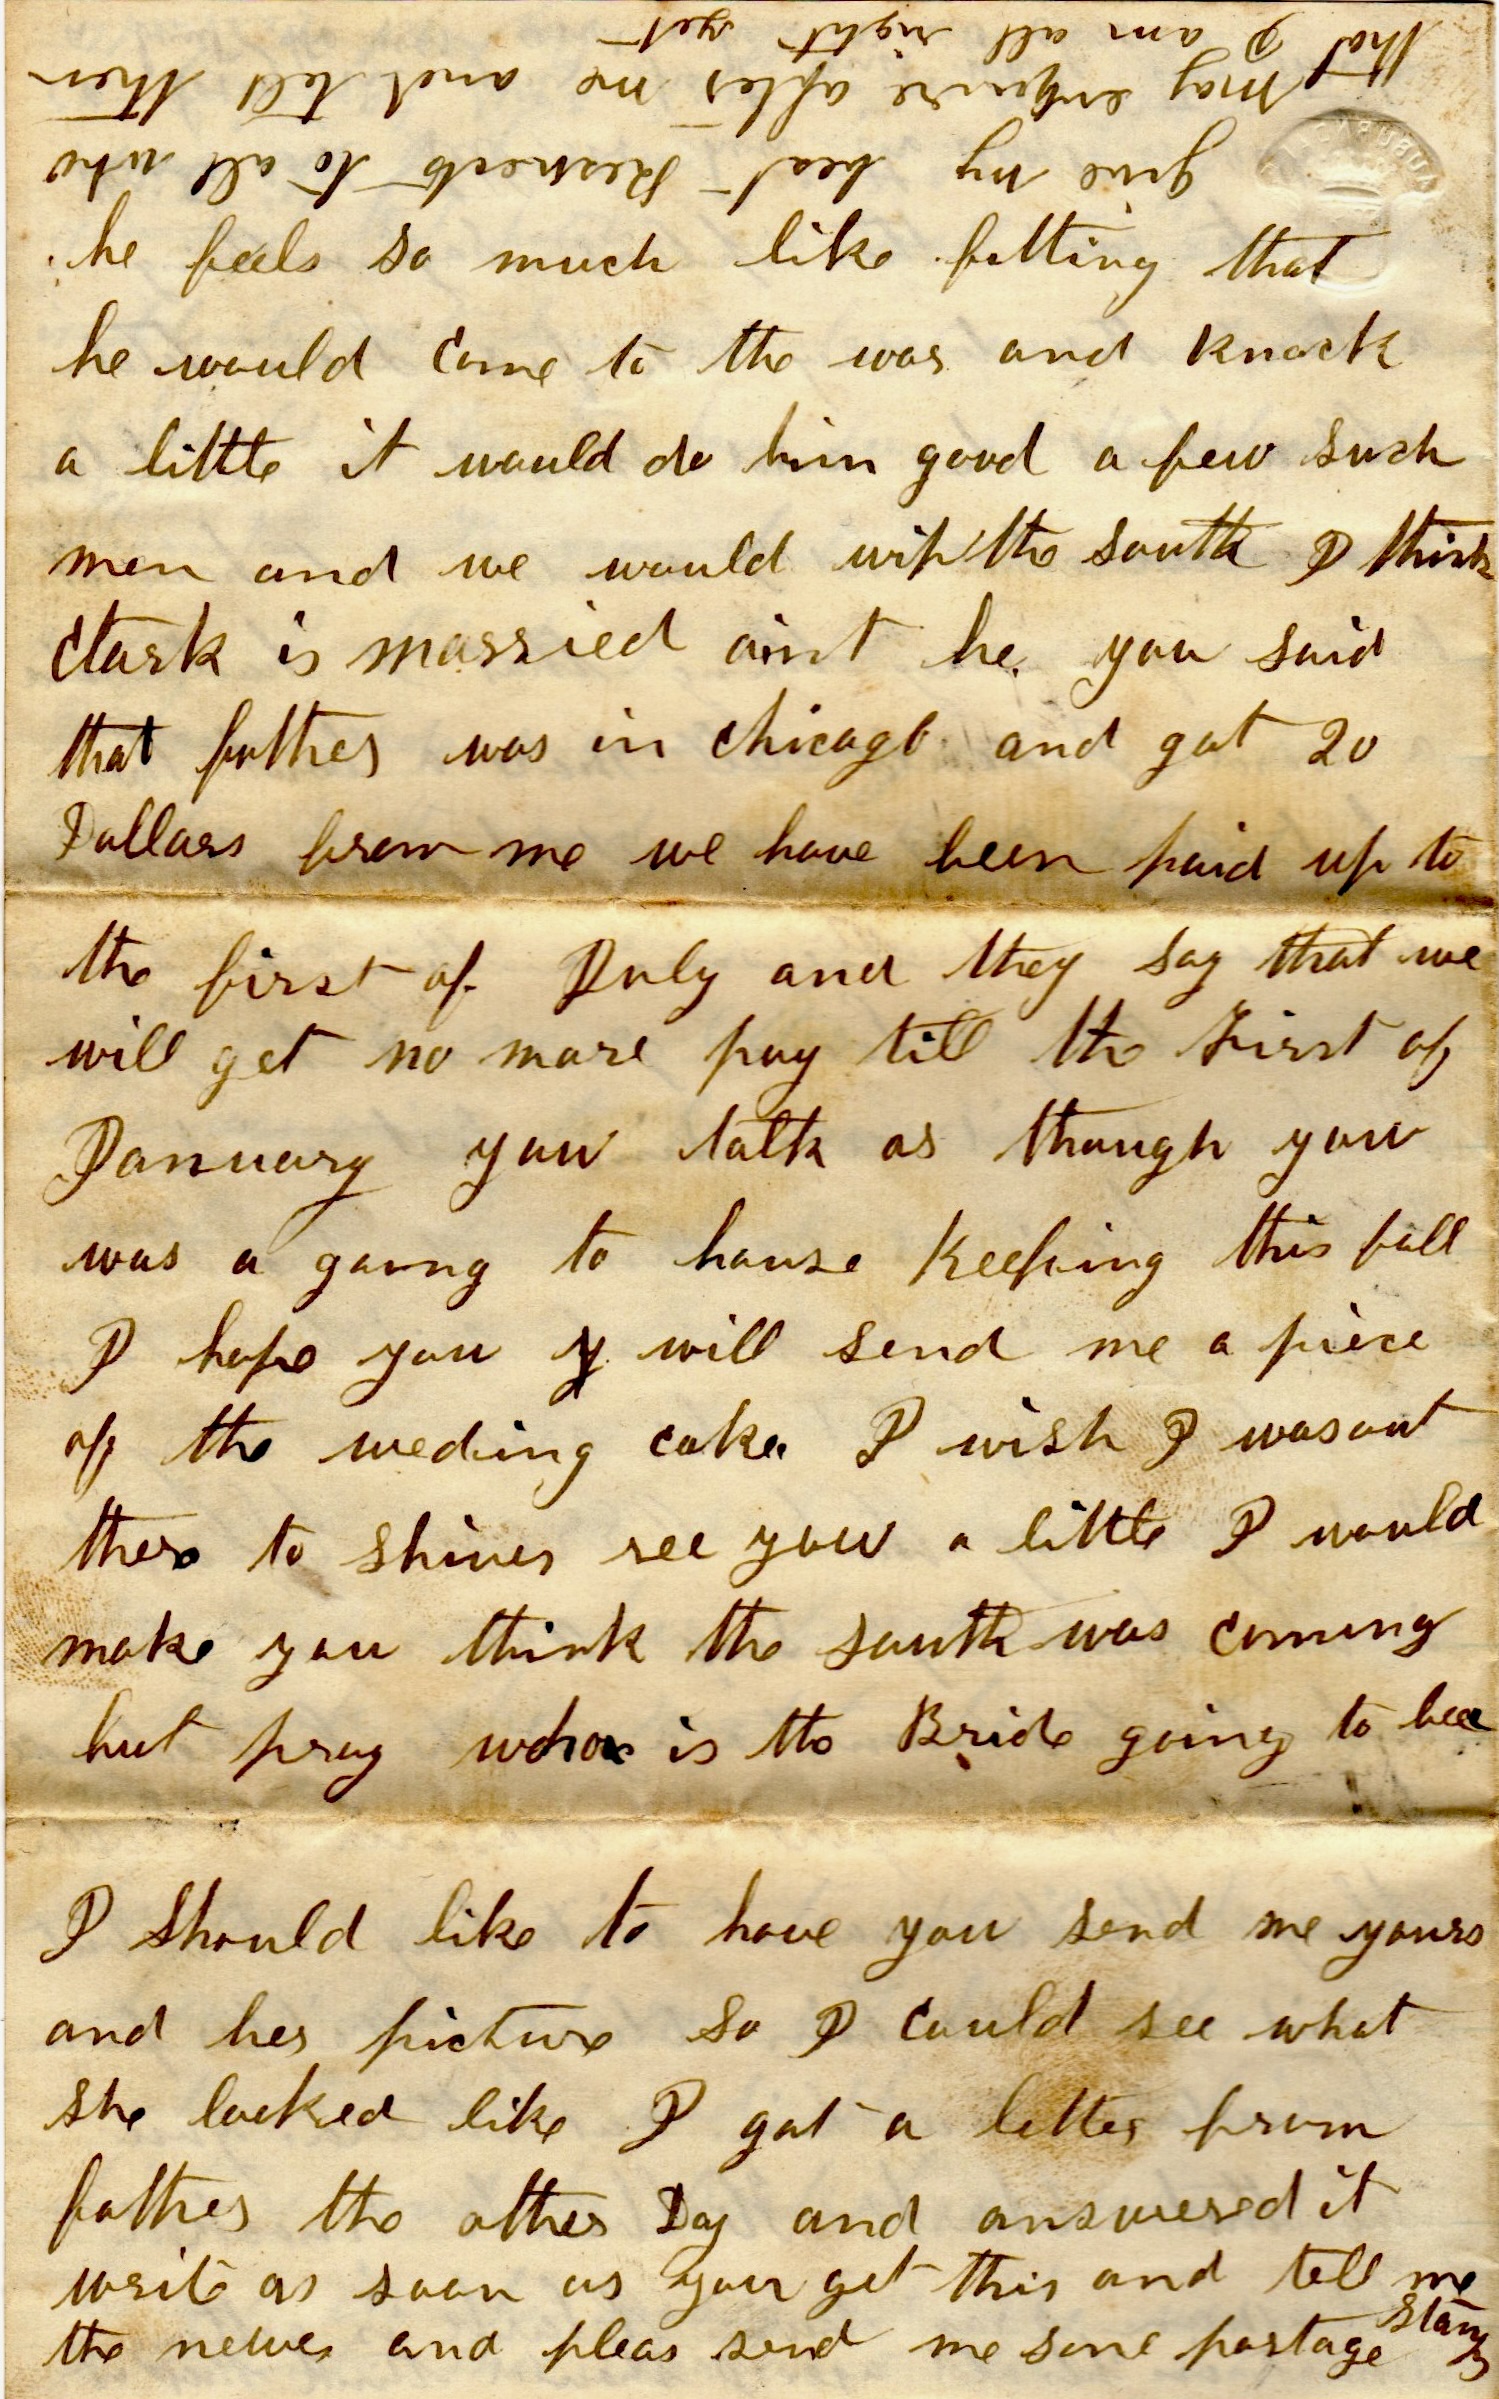 he feels so much like fitting that
he would Come to the war and Knock
a little it would do him good a few such
men and we would wip the south I think
Clark is married aint he. you said
that father was in Chicago and got 20
Dollars from me we have been paid up to
the first of July and they say that we
will get no more pay till the First of
January you talk as though you
was a going to house Keeping this fall
I hope you y will send me a piece
of the weding cake. I wish I was out
there to shiver ree you a little I would
make you think the south was Coming
but pray who is the Bride going to bee
I Should like to have you send me yours
and her picture So I Could see what
she looked like I got a letter from
father the other Day and answered it
write as soon as you get this and tell me
the newes and pleas send me some postage Stamps
give my best Respects to all who
may enquire after me and tell them
that I am all right yet